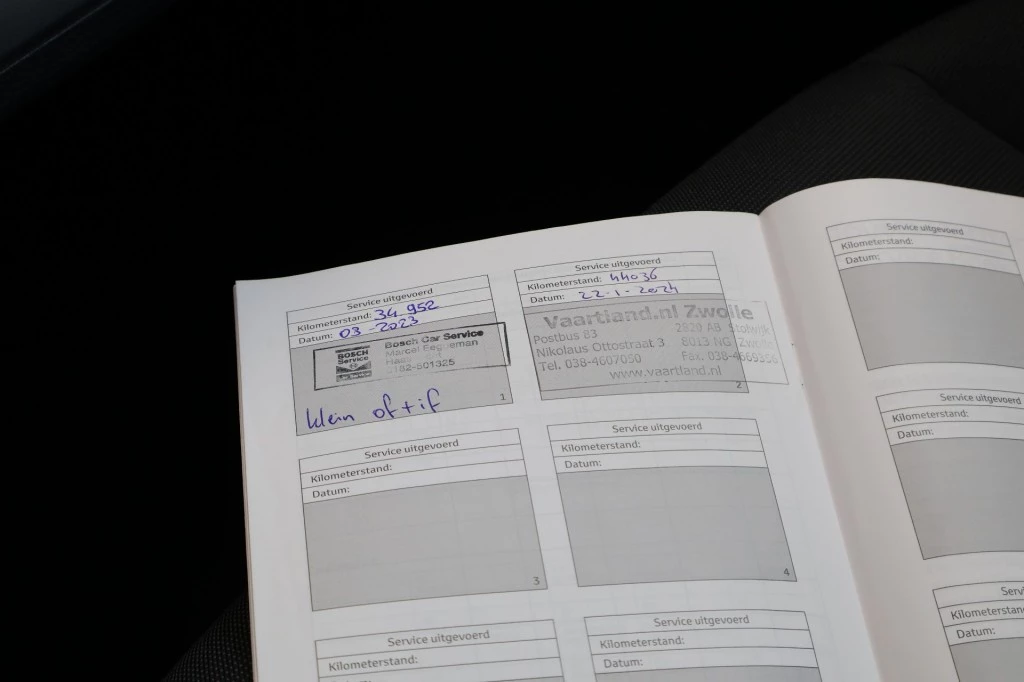 Service uitgevoerd
Kilometerstand: 34.952
Datum: 03-2023
BOSCH
Service
Bosch Car Service
Marcel
0182-501325
klein
1
Service uitgevoerd
Kilometerstand: 44036
Datum: 22-1-2024
Vaartland.nl Zwolle
Postbus 83 2820 AB Stolwijk
Nikolaus Ottostraat 3 8013 NG Zwolle
Tel. 038-4607050 Fax. 038-4669356
www.vaartland.nl
2
Service uitgevoerd
Kilometerstand:
Datum:
3
Service uitgevoerd
Kilometerstand:
Datum:
4
Service uitgevoerd
Kilometerstand:
Service uitgevoerd
Kilometerstand:
Datum:
Service uitgevoerd
Kilometerstand:
Datum:
Service uitgevoerd
Kilometerstand:
Datum:
Kilometerstand
Datum: